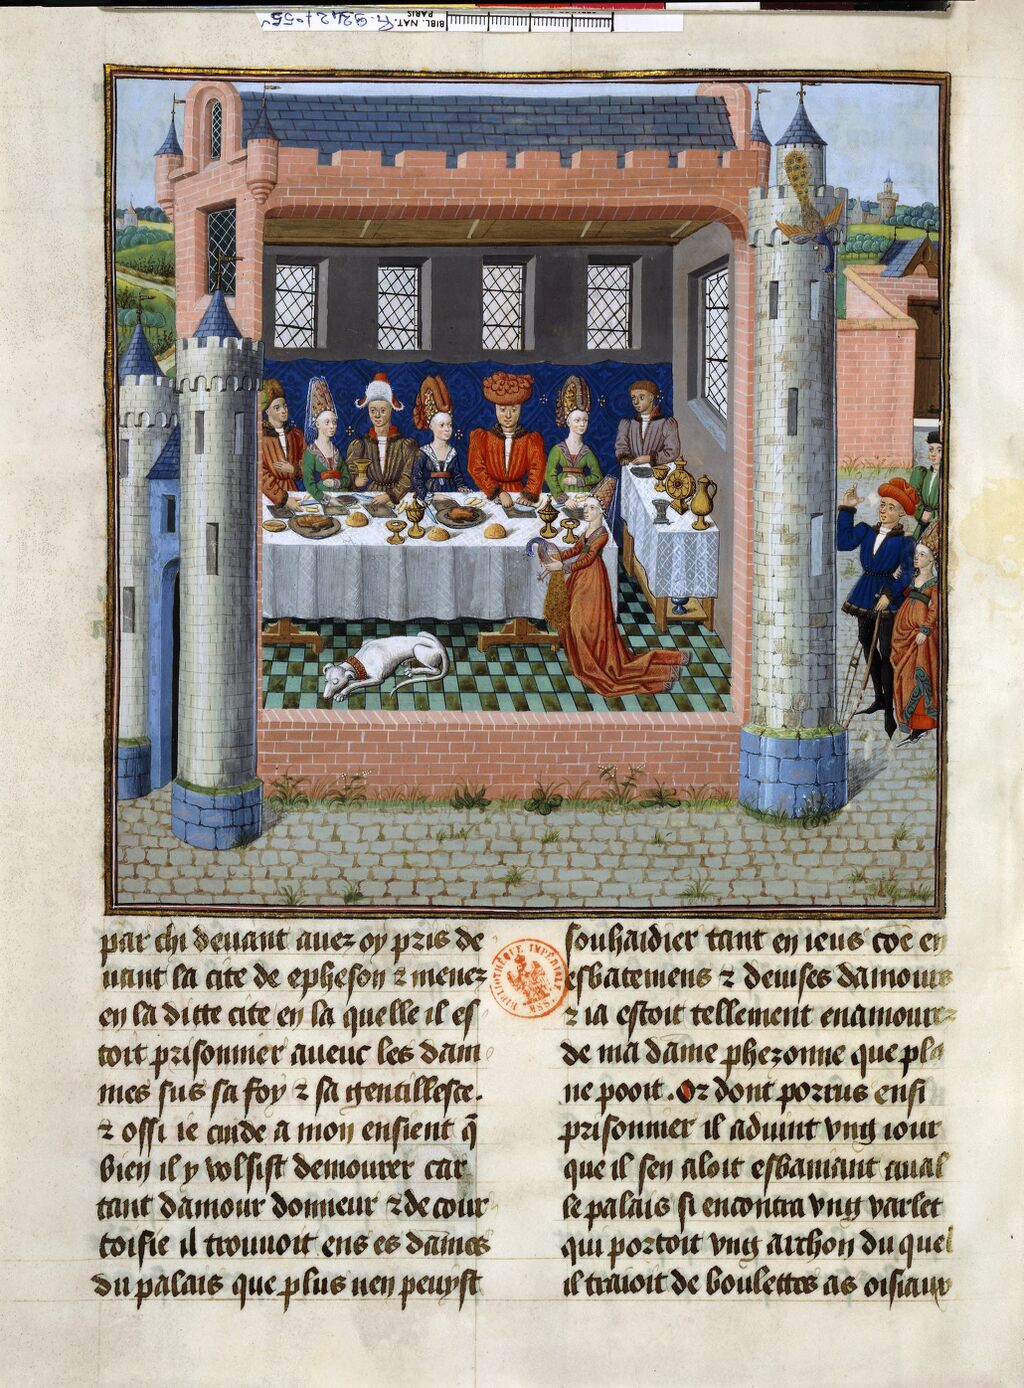 BIBL. NAT.
PARIS
R.9342+055
par chi deuant auez oy pris de
uant la cite de epheson ⁊ menez
en la ditte cite en la quelle il es
toit prisonnier auuec les dam
mes sus sa foy ⁊ sa gentillesce.
⁊ ossi ie cuide a mon ensient q̃
bien il y volsist demourer car
tant damour donneur ⁊ de cour
toisie il trouuoit ens es dames
du palais que plus nen peuyst
souhaidier tant en ieus coe en
esbatemens ⁊ deuises damours
⁊ ia estoit tellement enamourez
de ma dame phezonne que plu
ne pooit. Or dont porrus ensi
prisonnier il aduint vng iour
que il sen aloit esbaniant aual
le palais si encontra vng varlet
qui portoit vng archon du quel
il traioit de boulettes as oisiaux
BIBLIOTHÈQUE IMPÉRIALE MSS.